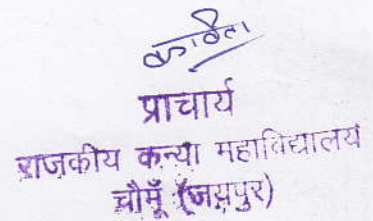 कविता
प्राचार्य
राजकीय कन्या महाविद्यालय
चौमूँ (जयपुर)